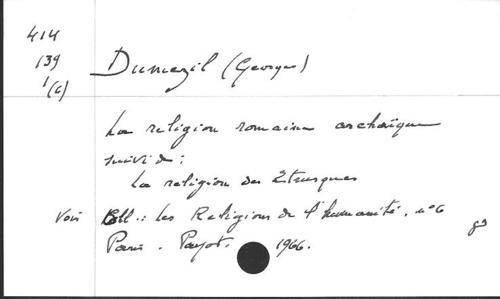 414
139
1/(6)
Dumezil (Georges)
La religion romaine archaïque
suivi de :
La religion des Etrusques
Voir Coll.: Les Religions de l'humanité, n°6
Paris - Payot. 1966.